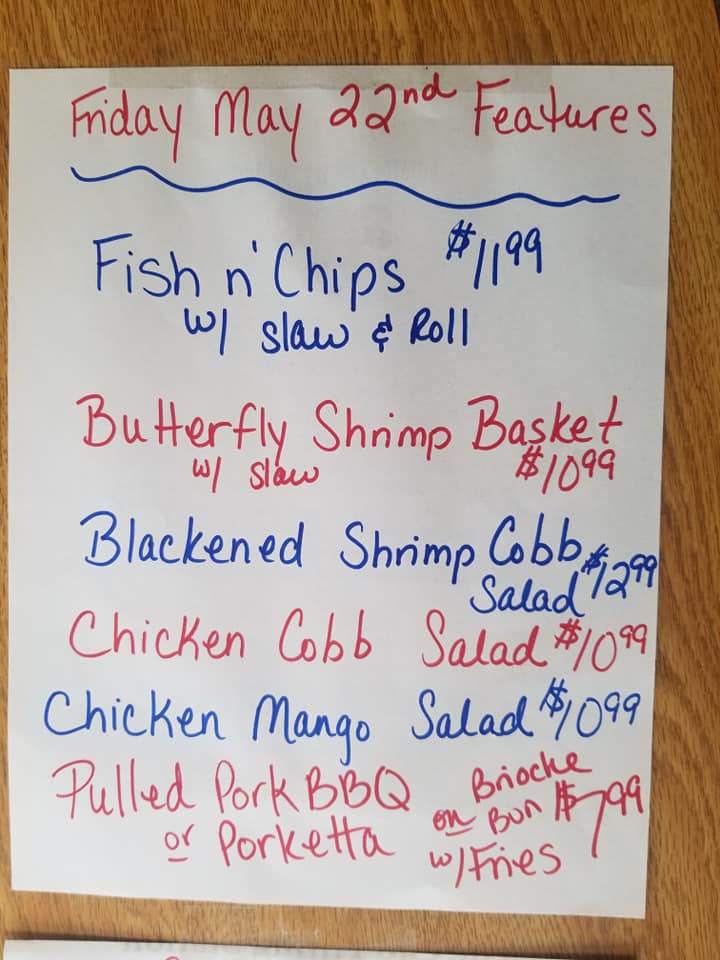 Friday May 22nd Features
Fish n' Chips $11.99
w/ slaw & Roll
Butterfly Shrimp Basket
w/ slaw $10.99
Blackened Shrimp Cobb $12.99
Salad
Chicken Cobb Salad $10.99
Chicken Mango Salad $10.99
Pulled Pork BBQ
or Porketta
Brioche
on Bun $7.99
w/ Fries